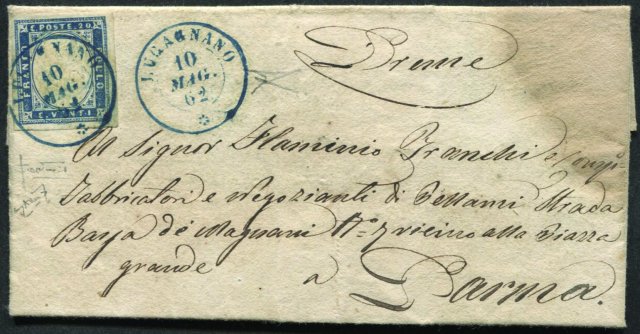 C. POSTE 20
FRANCO
BOLLO
C. VENTI
10
MAG.
LUGAGNANO
10
MAG.
62
Preme
Al Signor Flaminio Franchi e Comp.
Fabbricatori e Negozianti di Pellami Strada
Bassa dei Magnani N.° 7 vicino alla Piazza
grande a Parma.